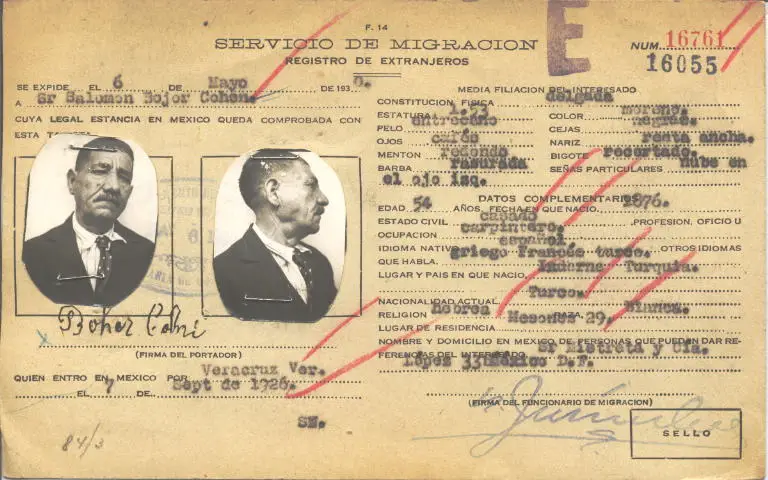 F. 14
SERVICIO DE MIGRACION
REGISTRO DE EXTRANJEROS
E
NUM. 16761
16055
SE EXPIDE EL 6 DE Mayo DE 1930.
A Sr Salomon Bojor Cohen.
CUYA LEGAL ESTANCIA EN MEXICO QUEDA COMPROBADA CON
ESTA TARJETA
Bohor Cohi
(FIRMA DEL PORTADOR)
QUIEN ENTRO EN MEXICO POR Veracruz Ver.
EL 7 DE Sept de 1926.
SN.
84/3
MEDIA FILIACION DEL INTERESADO
CONSTITUCION FISICA delgada
ESTATURA 1.53 COLOR moreno.
PELO entrecano CEJAS negras.
OJOS cafés NARIZ recta ancha.
MENTON redondo BIGOTE recortado.
BARBA rasurada SEÑAS PARTICULARES Nube en
el ojo izq.
DATOS COMPLEMENTARIOS
EDAD 54 AÑOS, FECHA EN QUE NACIO 1876.
ESTADO CIVIL casado PROFESION, OFICIO U
OCUPACION carpintero.
IDIOMA NATIVO español. OTROS IDIOMAS
QUE HABLA. griego Francés turco.
LUGAR Y PAIS EN QUE NACIO, Inderne Turquia.
NACIONALIDAD ACTUAL Turco.
RELIGION hebrea RAZA, Blanca.
LUGAR DE RESIDENCIA Mesones 29.
NOMBRE Y DOMICILIO EN MEXICO, DE PERSONAS QUE PUEDAN DAR RE-
FERENCIAS DEL INTERESADO Sr Mistrata y Cia.
López 33 Mexico D.F.
(FIRMA DEL FUNCIONARIO DE MIGRACION)
SELLO